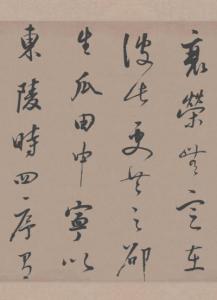 衰榮無定在
彼此更共之邵
生瓜田中寧似
東陵時四序有